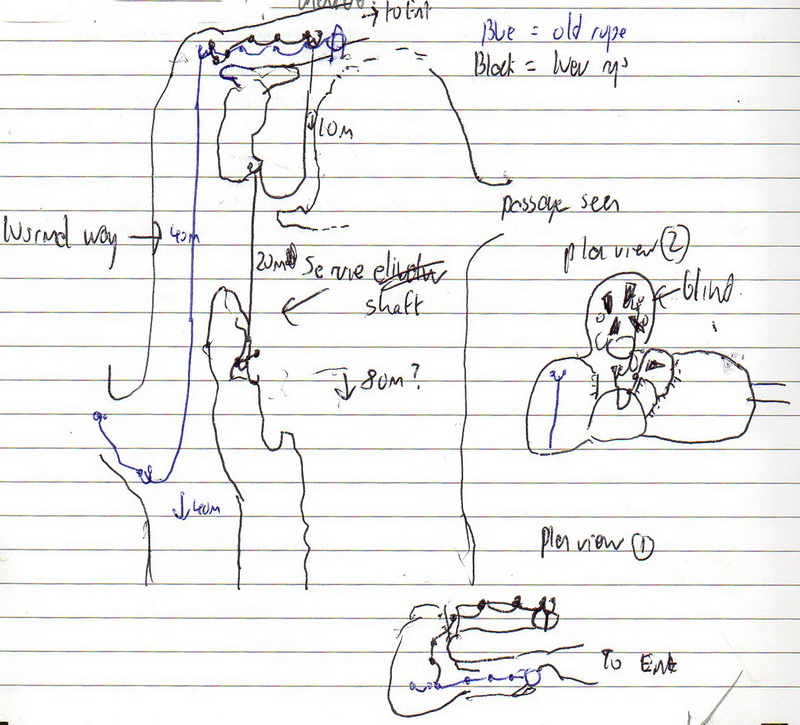 → to Ent
Blue = old rope
Black = New rope
10M
passage seen
Normal way
40m
20m
shaft
plan view ②
blind
↓ 80m?
↓ 40m
Plan view ①
To Ent